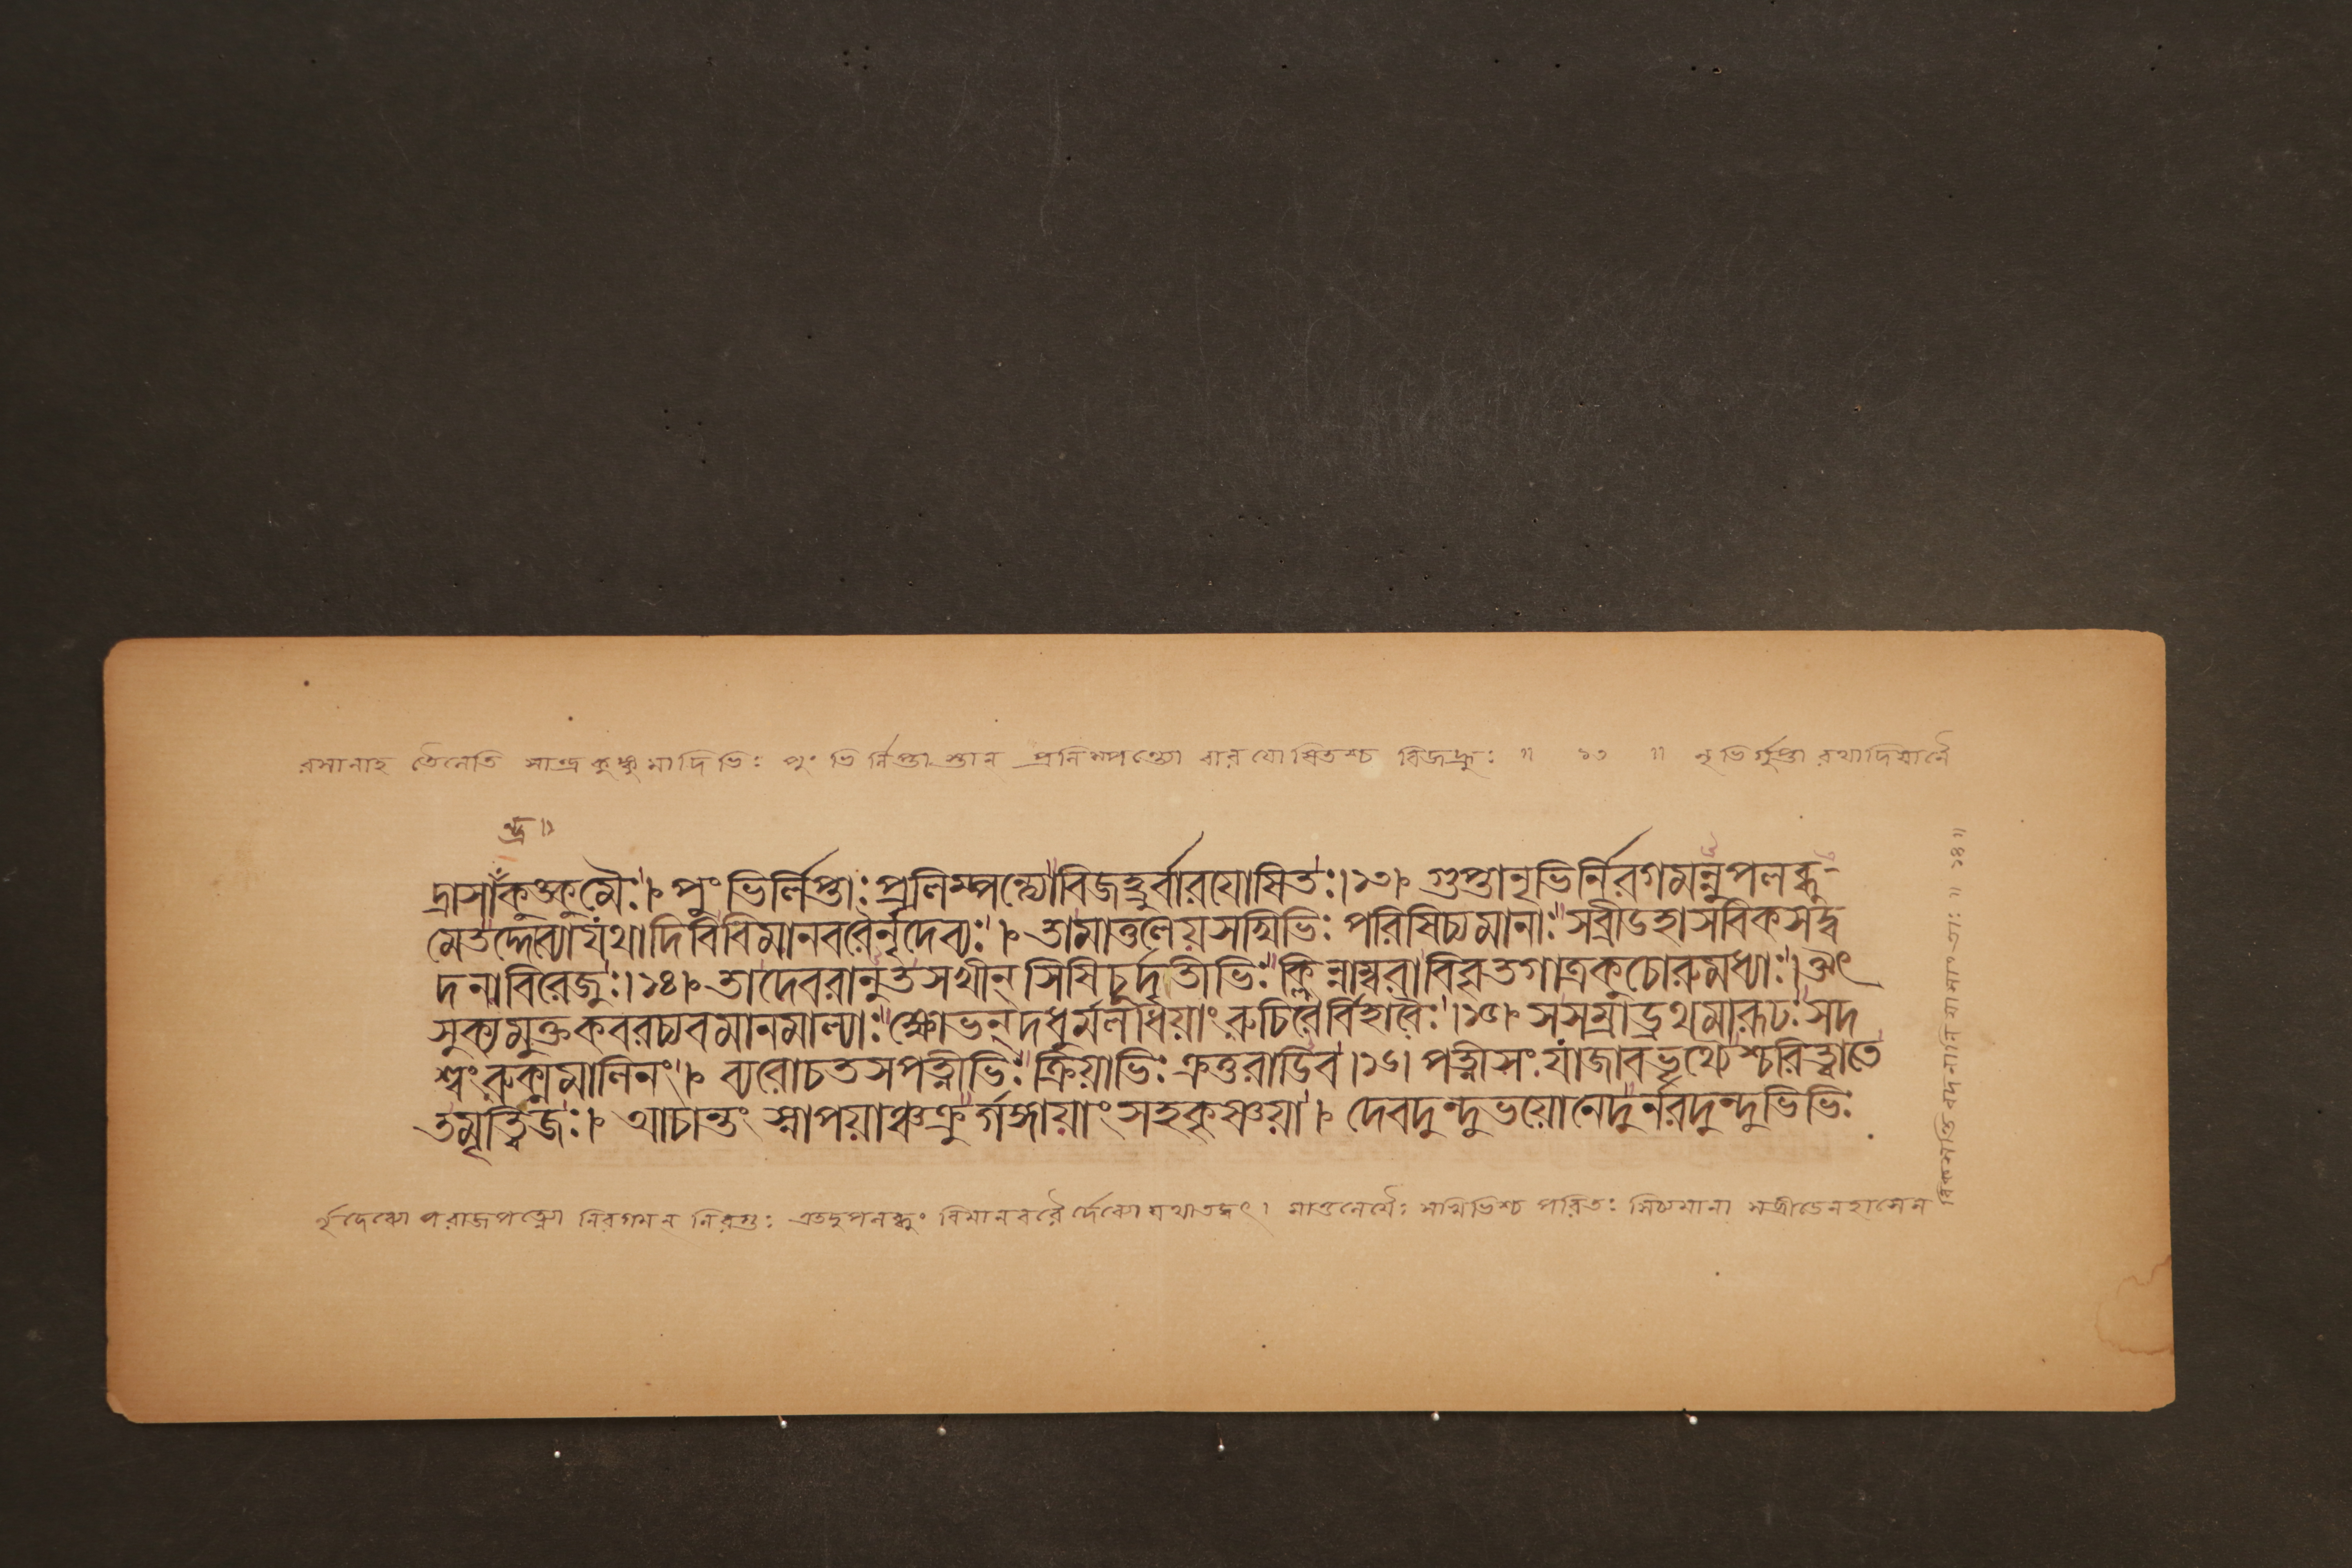 রসানাহ তৈলেতি সান্দ্রকুঙ্কুমাদিভিঃ পুংভির্লিপ্তাস্তান্ প্রলিম্পন্ত্যো বারযোষিতশ্চ বিজহ্রুঃ ॥ ১৩ ॥ নৃভির্গুপ্তা রথাদিযানৈ
ন্দ্র॥
দ্রাসাঁকুঙ্কুমৈঃ।৷ পুংভির্লিপ্তাঃপ্রলিম্পন্ত্যোবিজহ্রুর্বারযোষিতঃ।১৩৷ গুপ্তানৃভির্নিরগমন্নুপলব্ধু-
মেতদ্দেব্যোযথাদিবিবিমানবরৈর্নৃদেব্যঃ।৷ তামাতুলেয়সখিভিঃ পরিষিচ্যমানাঃসব্রীডহাসবিকসদ্ব
দনাবিরেজুঃ।১৪৷ তাদেবরানুতসখীন্ সিষিচুর্দৃতীভিঃক্লিন্নাম্বরাবিবৃতগাত্রকুচোরুমধ্যাঃ।ঔৎ
সুক্যমুক্তকবরচ্যবমানমাল্যাঃক্ষোভন্দধুর্মলধিয়াং রুচিরৈর্বিহারৈঃ।১৫৷ সসম্রাড্রথমারূঢঃসদ
শ্বং রুক্মমালিনং।৷ ব্যরোচতসপত্নীভিঃক্রিয়াভিঃ ক্রতুরাডিব।১৬৷ পত্নীসংযাজাবভৃথ্যৈশ্চরিত্বাতে
তমৃত্বিজঃ।৷ আচান্তং স্নাপয়াঞ্চক্রুর্গঙ্গায়াং সহকৃষ্ণয়া।৷ দেবদুন্দুভয়োনেদুর্নরদুন্দুভিভিঃ
র্নৃদেব্যো পরাজপত্ন্যো নিরগমন্ নিরগুঃ এতদুপলব্ধুং বিমানবরৈর্দেব্যো যথা তদ্বৎ। মাতুলেয়ৈঃ সখিভিশ্চ পরিতঃ সিচ্যমানা সব্রীডেনহাসেন
বিকসন্তি বদনানি যাসাং তাঃ ॥ ১৪॥